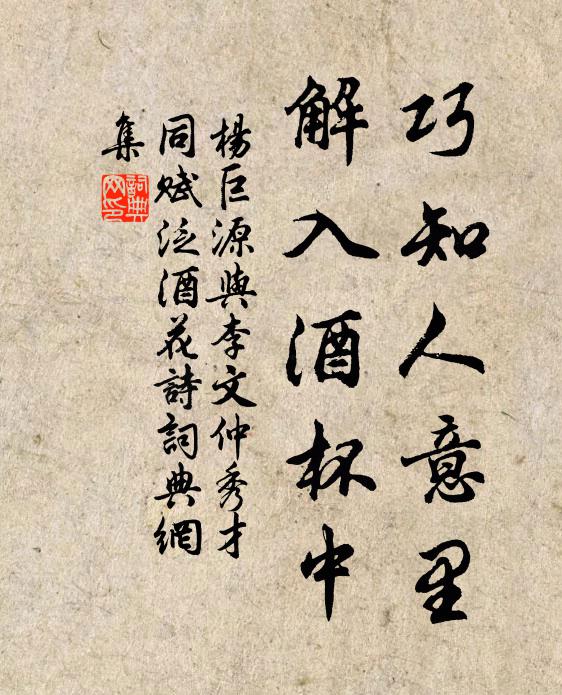 巧知人意里
解入酒杯中
楊巨源與李文仲秀才
同赋泛酒花詩詞典網
集
詞典网印